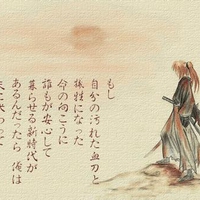 もし
自分の汚れた血刀と
犠牲になった
命の向こうに
誰もが安心して
暮らせる新時代が
あるんだったら 俺は
天に代わって